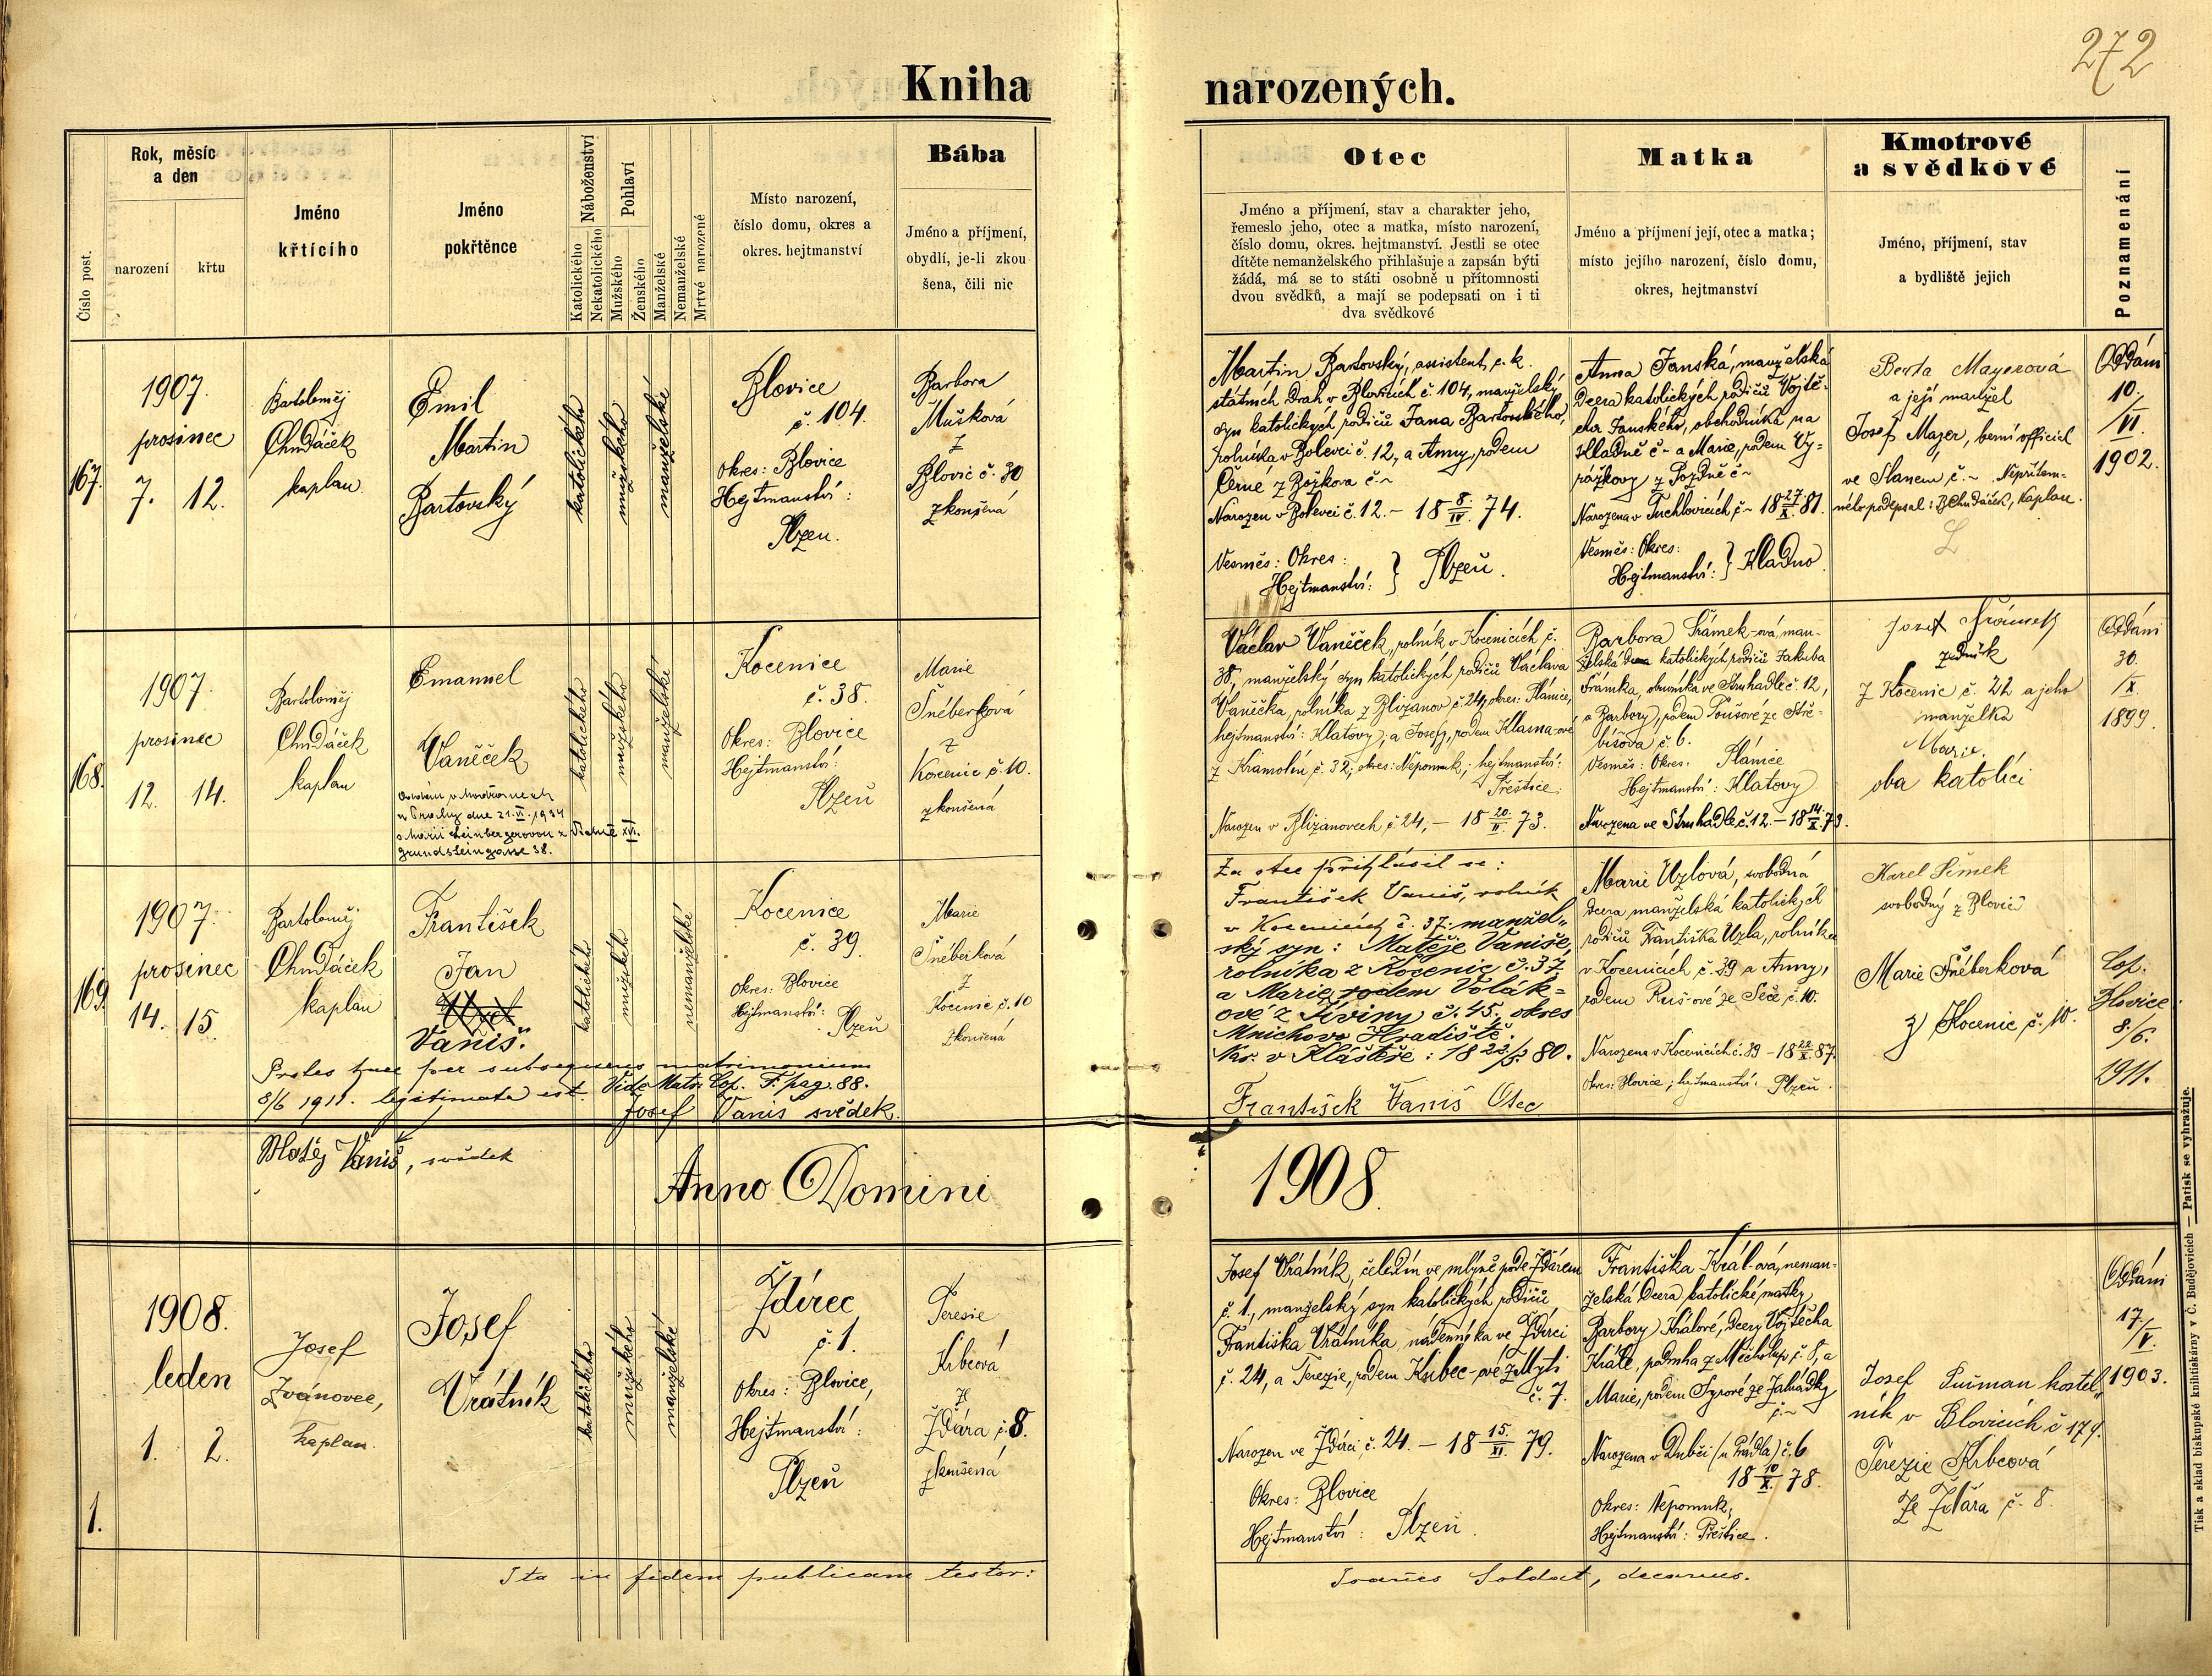 272
Kniha narozených.
Číslo post.
Rok, měsíc
a den
narození
křtu
Jméno
křtícího
Jméno
pokřtěnce
Náboženství
Katolického
Nekatolického
Pohlaví
Mužského
Ženského
Manželské
Nemanželské
Mrtvé narozené
Místo narození,
číslo domu, okres a
okres. hejtmanství
Bába
Jméno a příjmení,
obydlí, je-li zkou
šena, čili nic
Otec
Jméno a příjmení, stav a charakter jeho,
řemeslo jeho, otec a matka, místo narození,
číslo domu, okres. hejtmanství. Jestli se otec
dítěte nemanželského přihlašuje a zapsán býti
žádá, má se to státi osobně u přítomnosti
dvou svědků, a mají se podepsati on i ti
dva svědkové
Matka
Jméno a příjmení její, otec a matka;
místo jejího narození, číslo domu,
okres, hejtmanství
Kmotrové
a svědkové
Jméno, příjmení, stav
a bydliště jejich
Poznamenání
167.
1907.
prosinec
7. 12.
Bartoloměj
Chudáček
kaplan.
Emil
Martin
Bartovský
katolického
mužského
manželské
Blovice
č. 104.
Okres: Blovice
Hejtmanství:
Plzeň.
Barbora
Mušková
z
Blovic č. 30
zkoušená
Martin Bartovský, assistent c. k.
státních drah v Blovicích č. 104, manželský
syn katolických rodičů Jana Bartovského,
rolníka v Bolevci č. 12, a Anny, rodem
Černé z Božkova č. ~
Narozen v Bolevci č. 12. – 18 8./IV. 74.
Vesměs: Okres:
Hejtmanství: } Plzeň.
Anna Janská, manželská
dcera katolických rodičů Vojtě-
cha Janského, obchodníka na
Kladně č ~ a Marie, rodem Vy-
rážkovy z Pozdně č ~
Narozena v Tuchlovicích č ~ 18 27/X. 81.
Vesměs: Okres:
Hejtmanství: } Kladno.
Berta Mayerová
a její manžel
Josef Majer, berní official
ve Slaném č. ~ Nepřítom-
ného podepsal: B. Chudáček, kaplan.
Oddáni
10.
/VI.
1902.
168.
1907.
prosinec
12. 14.
Bartoloměj
Chudáček
kaplan
Emanuel
Vaněček
Oddán v Modřanech
u Prahy dne 21. VI. 1934
s Marii Leinbergerovou z Vídně XVI.
Grundsteingasse 38.
katolického
mužského
manželské
Kocenice
č. 38.
Okres: Blovice
Hejtmanství:
Plzeň
Marie
Šnéberková
z
Kocenic č. 10.
zkoušená
Václav Vaněček, rolník v Kocenicích č.
38, manželský syn katolických rodičů Václava
Vaněčka, rolníka z Blizanov č. 24, okres: Plánice,
hejtmanství: Klatovy, a Josefy, rodem Klasna-ové
z Kramolín č. 32; okres: Nepomuk; hejtmanství:
Přeštice.
Narozen v Blizanovech č. 24, – 18 20./II. 73.
Barbora Šrámek-ová, man-
želská dcera katolických rodičů Jakuba
Šrámka, obuvníka ve Struhadle č. 12,
a Barbory, rodem Toušové ze Stře-
bíšova č. 6.
Vesměs: Okres: Plánice
Hejtmanství: Klatovy
Narozena ve Struhadle č. 12. – 18 14./X. 79.
Josef Šrámek
zedník
z Kocenic č. 22 a jeho
manželka
Marie,
oba katolíci
Oddáni
30.
/X.
1899.
169.
1907.
prosinec
14. 15
Bartoloměj
Chudáček
kaplan
František
Jan
Vaniš.
katolického
mužského
nemanželské
Kocenice
č. 39.
Okres: Blovice
Hejtmanství: Plzeň
Marie
Šnéberková
z
Kocenic č. 10
zkoušená
Proles haec per subsequens matrimonium
8/6 1911. legitimata est. Vide Matr. Cop. F. pag. 88.
Josef Vaniš svědek.
Za otce přihlásil se:
František Vaniš, rolník
v Kocenicích č. 37. manžel-
ský syn: Matěje Vaniše,
rolníka z Kocenic č. 37
a Marie, rodem Volák-
ové z Liviny č. 45. okres
Mnichovo Hradiště.
Nar. v Klášteře: 18 23/3 80.
František Vaniš Otec
Marie Uzlová, svobodná
dcera manželská katolických
rodičů Františka Uzla, rolníka
v Kocenicích č. 39 a Anny,
rodem Ruš-ové ze Seče č. 10.
Narozena v Kocenicích č. 39 – 18 22./X. 87.
Okres: Blovice; hejtmanství: Plzeň.
Karel Šimek
svobodný z Blovic
Marie Šnéberková
z Kocenic č. 10.
Cop.
Blovice
8./6.
1911.
Matěj Vaniš, svědek
Anno Domini 1908.
1.
1908.
leden
1. 2.
Josef
Ivánovec,
kaplan
Josef
Vrátník
katolického
mužského
manželské
Ždírec
č. 1.
Okres: Blovice,
Hejtmanství:
Plzeň
Teresie
Krbcová
ze
Žďára č. 8.
zkoušená
Josef Vrátník, čeledín ve mlýně pode Žďárem
č. 1., manželský syn katolických rodičů
Františka Vrátníka, nádenníka ve Ždírci
č. 24, a Terezie, rodem Kubec-ové z Mýti
č. 7.
Narozen ve Ždírci č. 24. – 18 15./XI. 79.
Okres: Blovice
Hejtmanství: Plzeň.
Františka Král-ová, neman-
želská dcera katolické matky
Barbory Králové, dcery Vojtěcha
Krále, podruha z Měcholup č. 8, a
Marie, rodem Syrové ze Zahrádky
č. ~
Narozena v Dubči (u Prádla) č. 6
18 10/X. 78.
Okres: Nepomuk,
Hejtmanství: Přeštice.
Josef Šuman kostel-
ník v Blovicích č 179.
Terezie Krbcová
ze Žďára č. 8.
Oddáni
17.
/V.
1903.
Ita in fidem publicam testor: Joañes Soldat, decanus.
Tisk a sklad biskupské knihtiskárny v Č. Budějovicích — Patisk se vyhražuje.